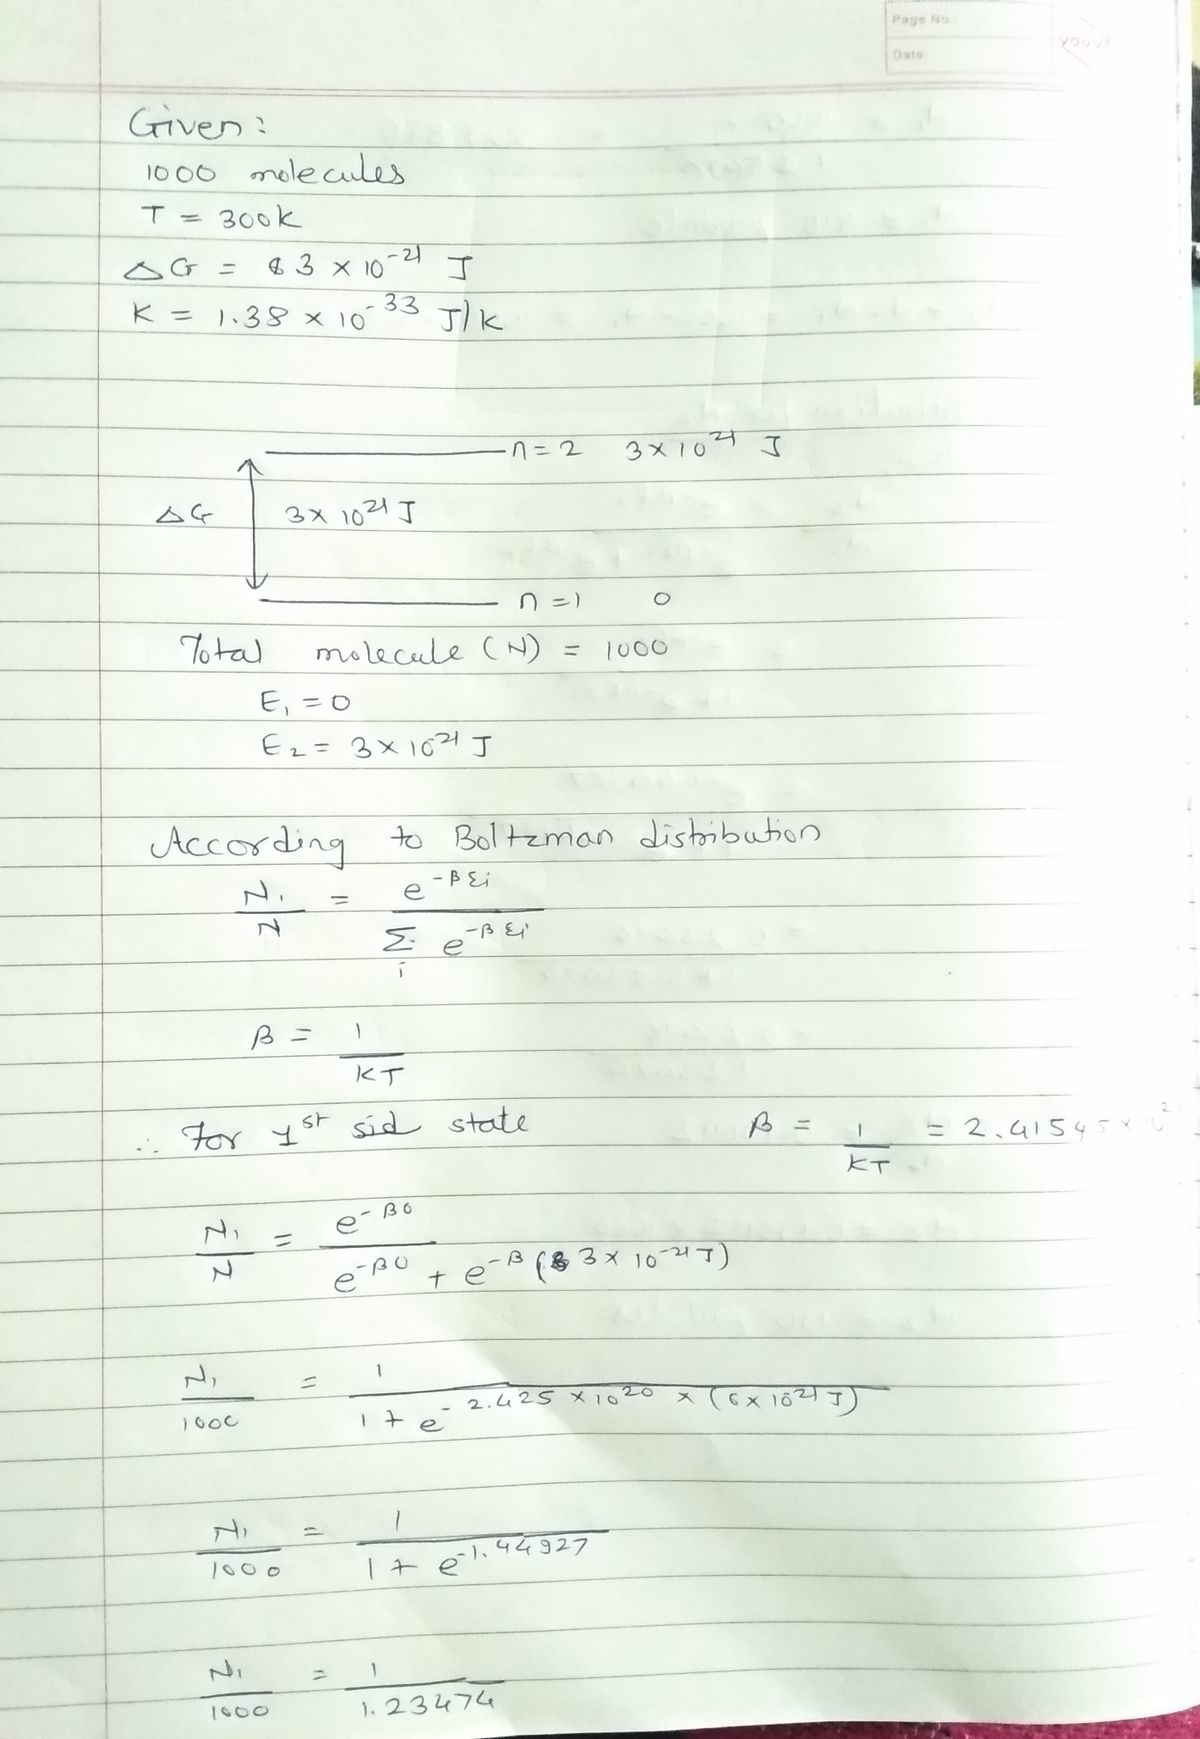 Page No.
Date:
Given:
1000 molecules
T = 300K
ΔG = 3 × 10⁻²¹ J
K = 1.38 × 10⁻³³ J/K
n=2 3×10⁻²¹ J
ΔG 3×10⁻²¹ J
n=1 0
Total molecule (N) = 1000
E₁ = 0
E₂ = 3×10⁻²¹ J
According to Boltzman distribution
N₁/N = e^(-βεi) / Σi e^(-βεi)
β = 1/KT
∴ For 1st sid state β = 1/KT = 2.41545×10²
N₁/N = e^(-β0) / e^(-β0) + e^(-β(3×10⁻²¹J))
N₁/1000 = 1 / 1+e^(-2.425×10²⁰×(6×10⁻²¹J))
N₁/1000 = 1 / 1+e^(-1.44927)
N₁/1000 = 1 / 1.23474